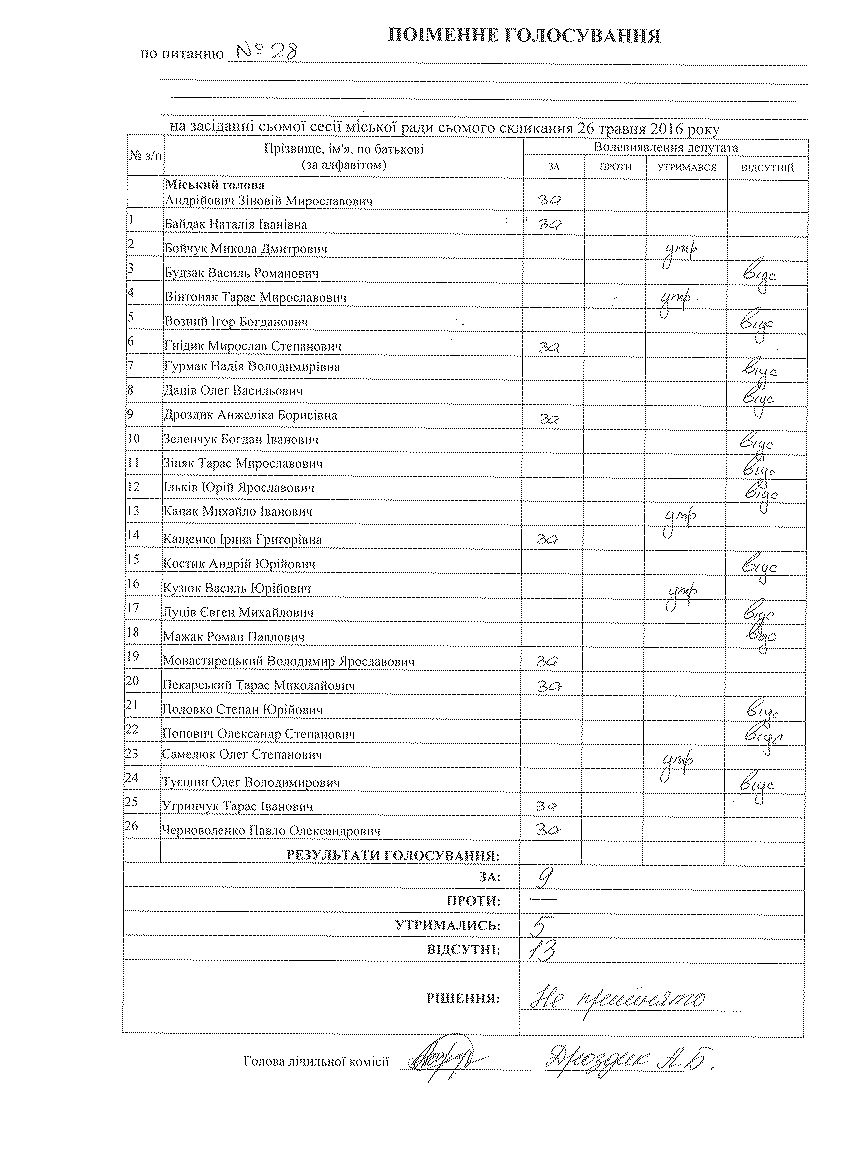 ПОІМЕННЕ ГОЛОСУВАННЯ
по питанню № 28
на засіданні сьомої сесії міської ради сьомого скликання 26 травня 2016 року
№ з/п Прізвище, ім'я, по батькові (за алфавітом) Волевиявлення депутата
ЗА ПРОТИ УТРИМАВСЯ ВІДСУТНІЙ
Міський голова
Андрійович Зіновій Мирославович за
1 Байдак Наталія Іванівна за
2 Бойчук Микола Дмитрович утр
3 Будзак Василь Романович відс
4 Вінтоняк Тарас Мирославович утр
5 Возний Ігор Богданович відс
6 Гнідик Мирослав Степанович за
7 Гурмак Надія Володимирівна відс
8 Даців Олег Васильович відс
9 Дроздик Анжеліка Борисівна за
10 Зеленчук Богдан Іванович відс
11 Зіняк Тарас Мирославович відс
12 Ільків Юрій Ярославович відс
13 Капак Михайло Іванович утр
14 Кащенко Ірина Григорівна за
15 Костик Андрій Юрійович відс
16 Кузюк Василь Юрійович утр
17 Луців Євген Михайлович відс
18 Мажак Роман Павлович відс
19 Монастирецький Володимир Ярославович за
20 Пекарський Тарас Миколайович за
21 Половко Степан Юрійович відс
22 Попович Олександр Степанович відс
23 Самелюк Олег Степанович утр
24 Олег Володимирович відс
25 Угринчук Тарас Іванович за
26 Черноволенко Павло Олександрович за
РЕЗУЛЬТАТИ ГОЛОСУВАННЯ:
ЗА: 9
ПРОТИ: —
УТРИМАЛИСЬ: 5
ВІДСУТНІ: 13
РІШЕННЯ: Не прийнято
Голова лічильної комісії Дроздик А.Б.